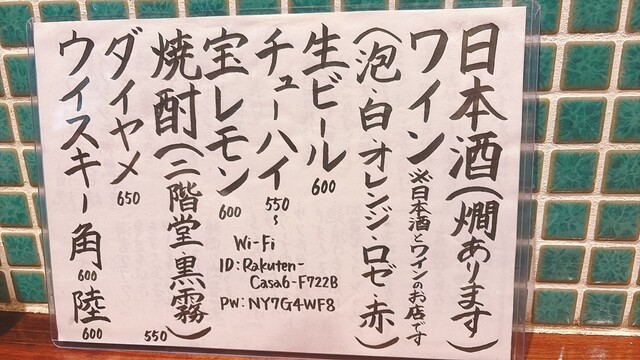 日本酒(燗あります)
ワイン ※日本酒とワインのお店です
(泡・白・オレンジ・ロゼ・赤)
生ビール 600
チューハイ 550~
宝レモン 600
焼酎(二階堂・黒霧) 550
ダイヤメ 650
ウイスキー 角 600 陸 600
Wi-Fi
ID:Rakuten-
Casa6-F722B
PW:NY7G4WF8